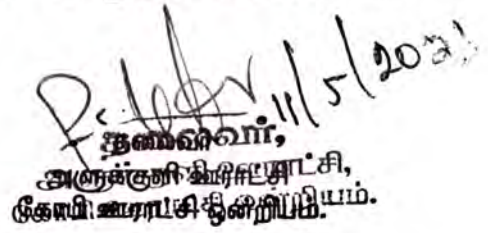 11/5/202
தலைவர்,
அளுக்குளி ஊராட்சி,
கோபி ஊராட்சி ஒன்றியம்.